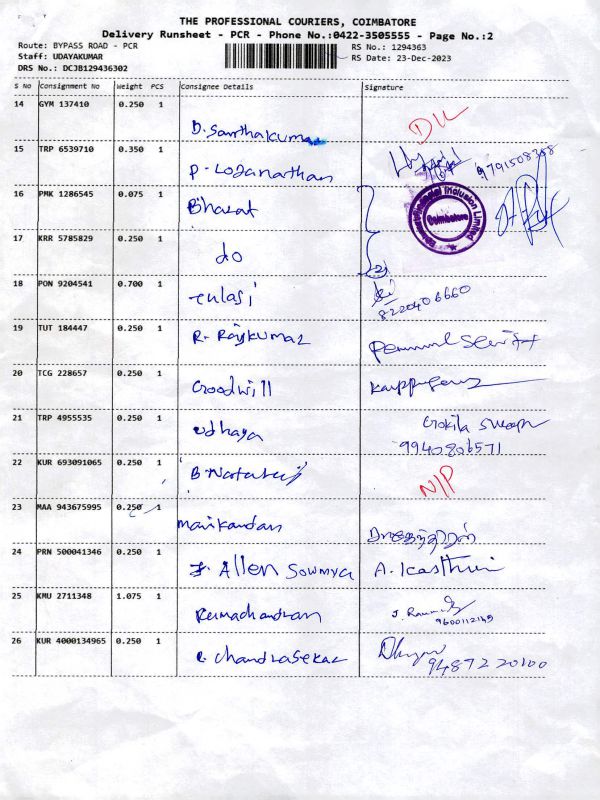 THE PROFESSIONAL COURIERS, COIMBATORE
Delivery Runsheet - PCR - Phone No.:0422-3505555 - Page No.:2
Route: BYPASS ROAD - PCR RS No.: 1294363
Staff: UDAYAKUMAR RS Date: 23-Dec-2023
DRS No.: DCJB129436302
S No Consignment No Weight PCS Consignee Details Signature
14 GYM 137410 0.250 1
D. Santhakumar D/L
15 TRP 6539710 0.350 1
P. Loganathan 9791508358
16 PMK 1286545 0.075 1
Bharat
Inclusion Limited
Coimbatore
17 KRR 5785829 0.250 1
do
18 PON 9204541 0.700 1
Tulasi 8220406660
19 TUT 184447 0.250 1
R. Rajkumar
20 TCG 228657 0.250 1
Goodwill
21 TRP 4955535 0.250 1
Udhaya Gokila
9940806571
22 KUR 693091065 0.250 1
B. Nataraj N/P
23 MAA 943675995 0.250 1
Manikandan
24 PRN 500041346 0.250 1
J. Allen Sowmya A. Kasthuri
25 KMU 2711348 1.075 1
Ramachandran
9600112149
26 KUR 4000134965 0.250 1
C. Chandrasekar
94872 20100